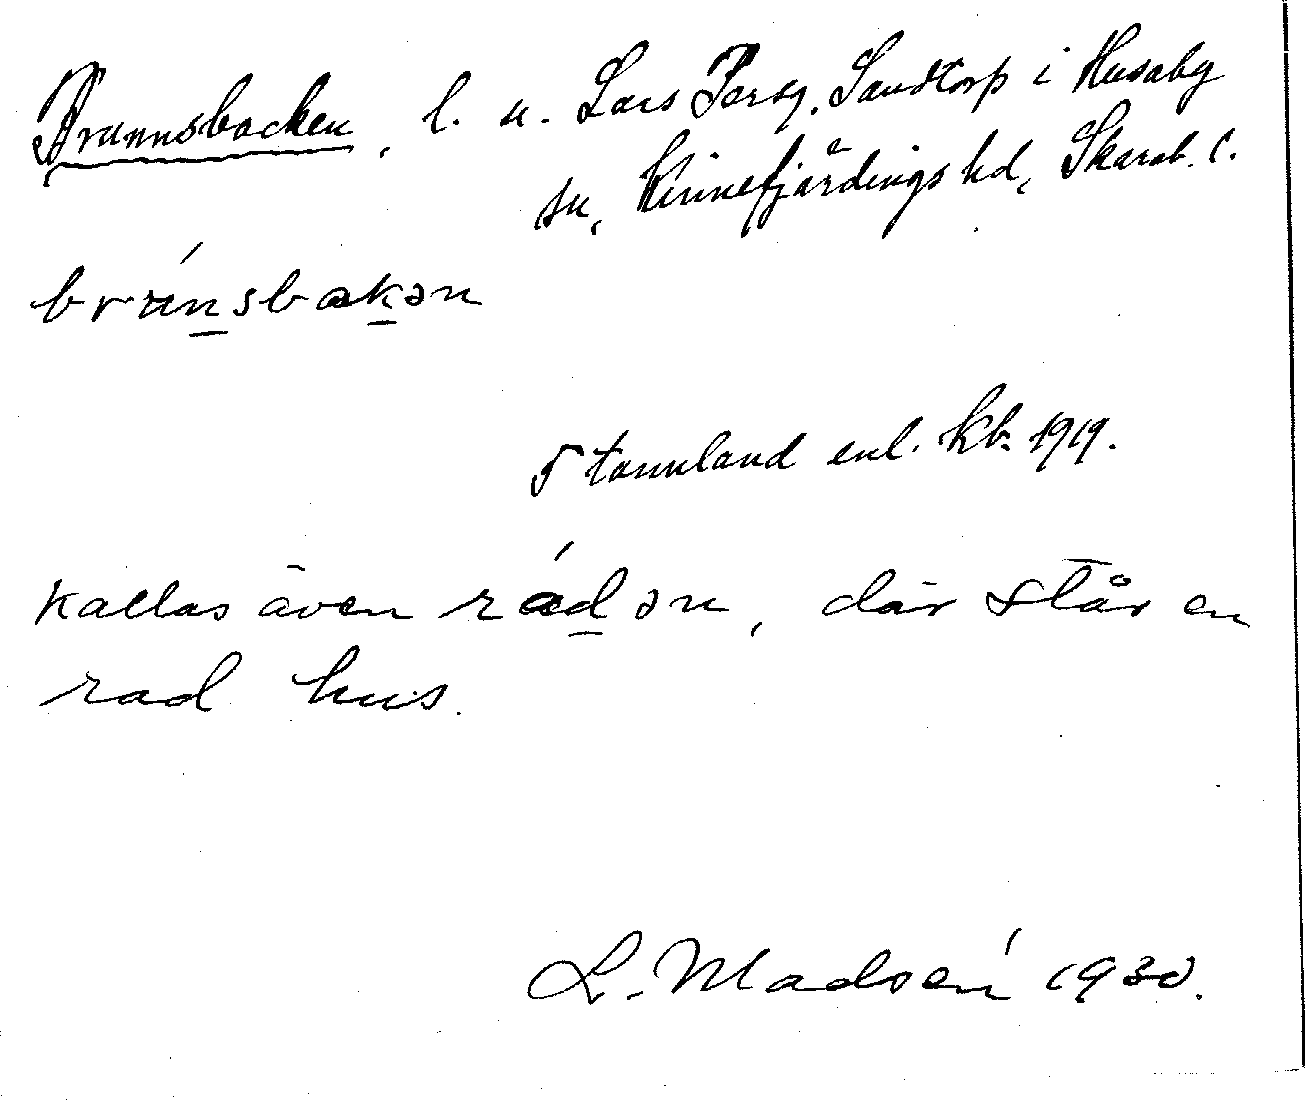 Brunnsbacken, l. u. Lars Persg. Sandtorp i Husaby
sn, Kinnefjärdings hd, Skarab. l.
brúnsbakən
5 tunnland enl. kb. 1919.
kallas även rádən, där står en
rad hus.
L. Madsén 1930.